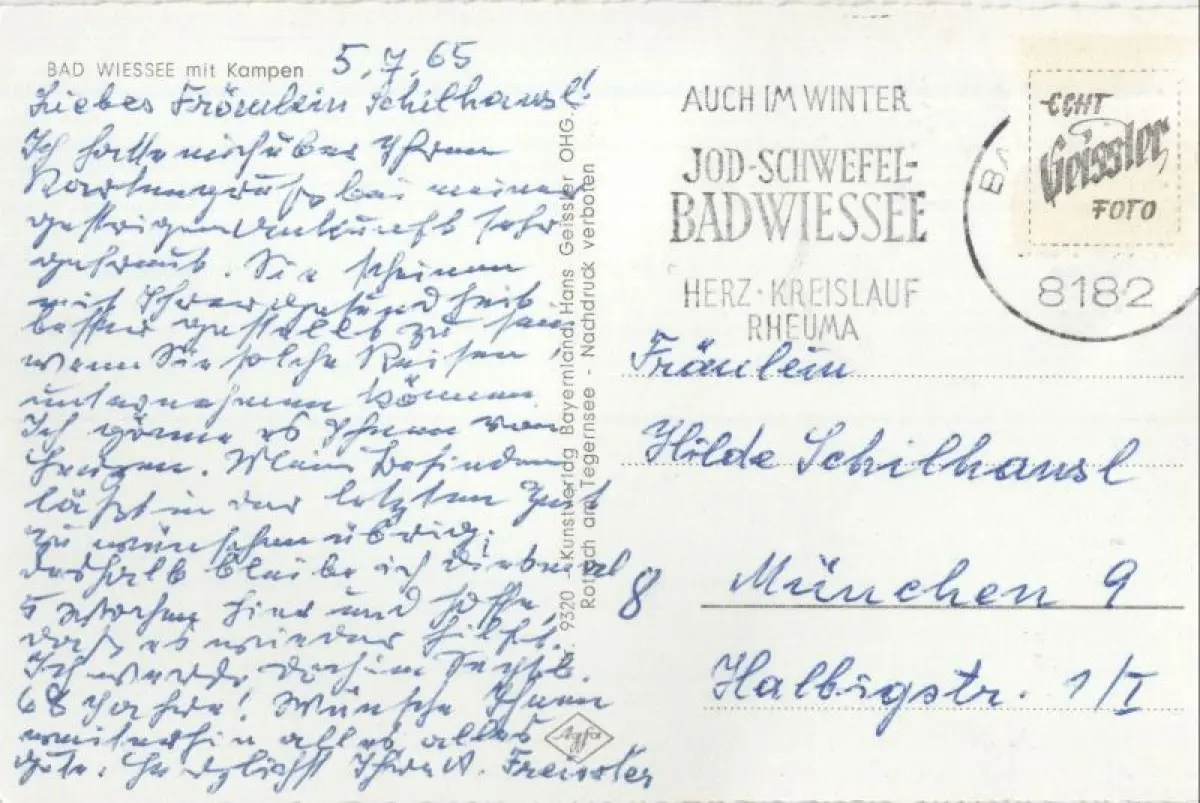 BAD WIESSEE mit Kampen
5.7.65
Liebes Fräulein Schilhansl!
Ich hatte mich über Ihren
Kartengruß bei meiner
gestrigen Ankunft sehr
gefreut. Sie scheinen
mit Ihrer Gesundheit
besser gestellt zu sein,
wenn Sie solche Reisen
unternehmen können.
Ich gönne es Ihnen von
Herzen. Mein Befinden
läßt in der letzten Zeit
zu wünschen übrig;
deshalb bleibe ich diesmal
5 Wochen hier und hoffe,
daß es wieder hilft.
Ich werde doch im Septb.
68 Jahre! Wünsche Ihnen
weiterhin alles alles
gute. Herzlichst Ihre A.
Nr. 9320 - Kunstverlag Bayernland, Hans Geissler OHG,
Rottach am Tegernsee - Nachdruck verboten
Agfa
AUCH IM WINTER
JOD-SCHWEFEL-
BAD WIESSEE
HERZ·KREISLAUF
RHEUMA
BA
8182
ECHT
Geissler
FOTO
Fräulein
Hilde Schilhansl
8 München 9
Halbigstr. 1/I